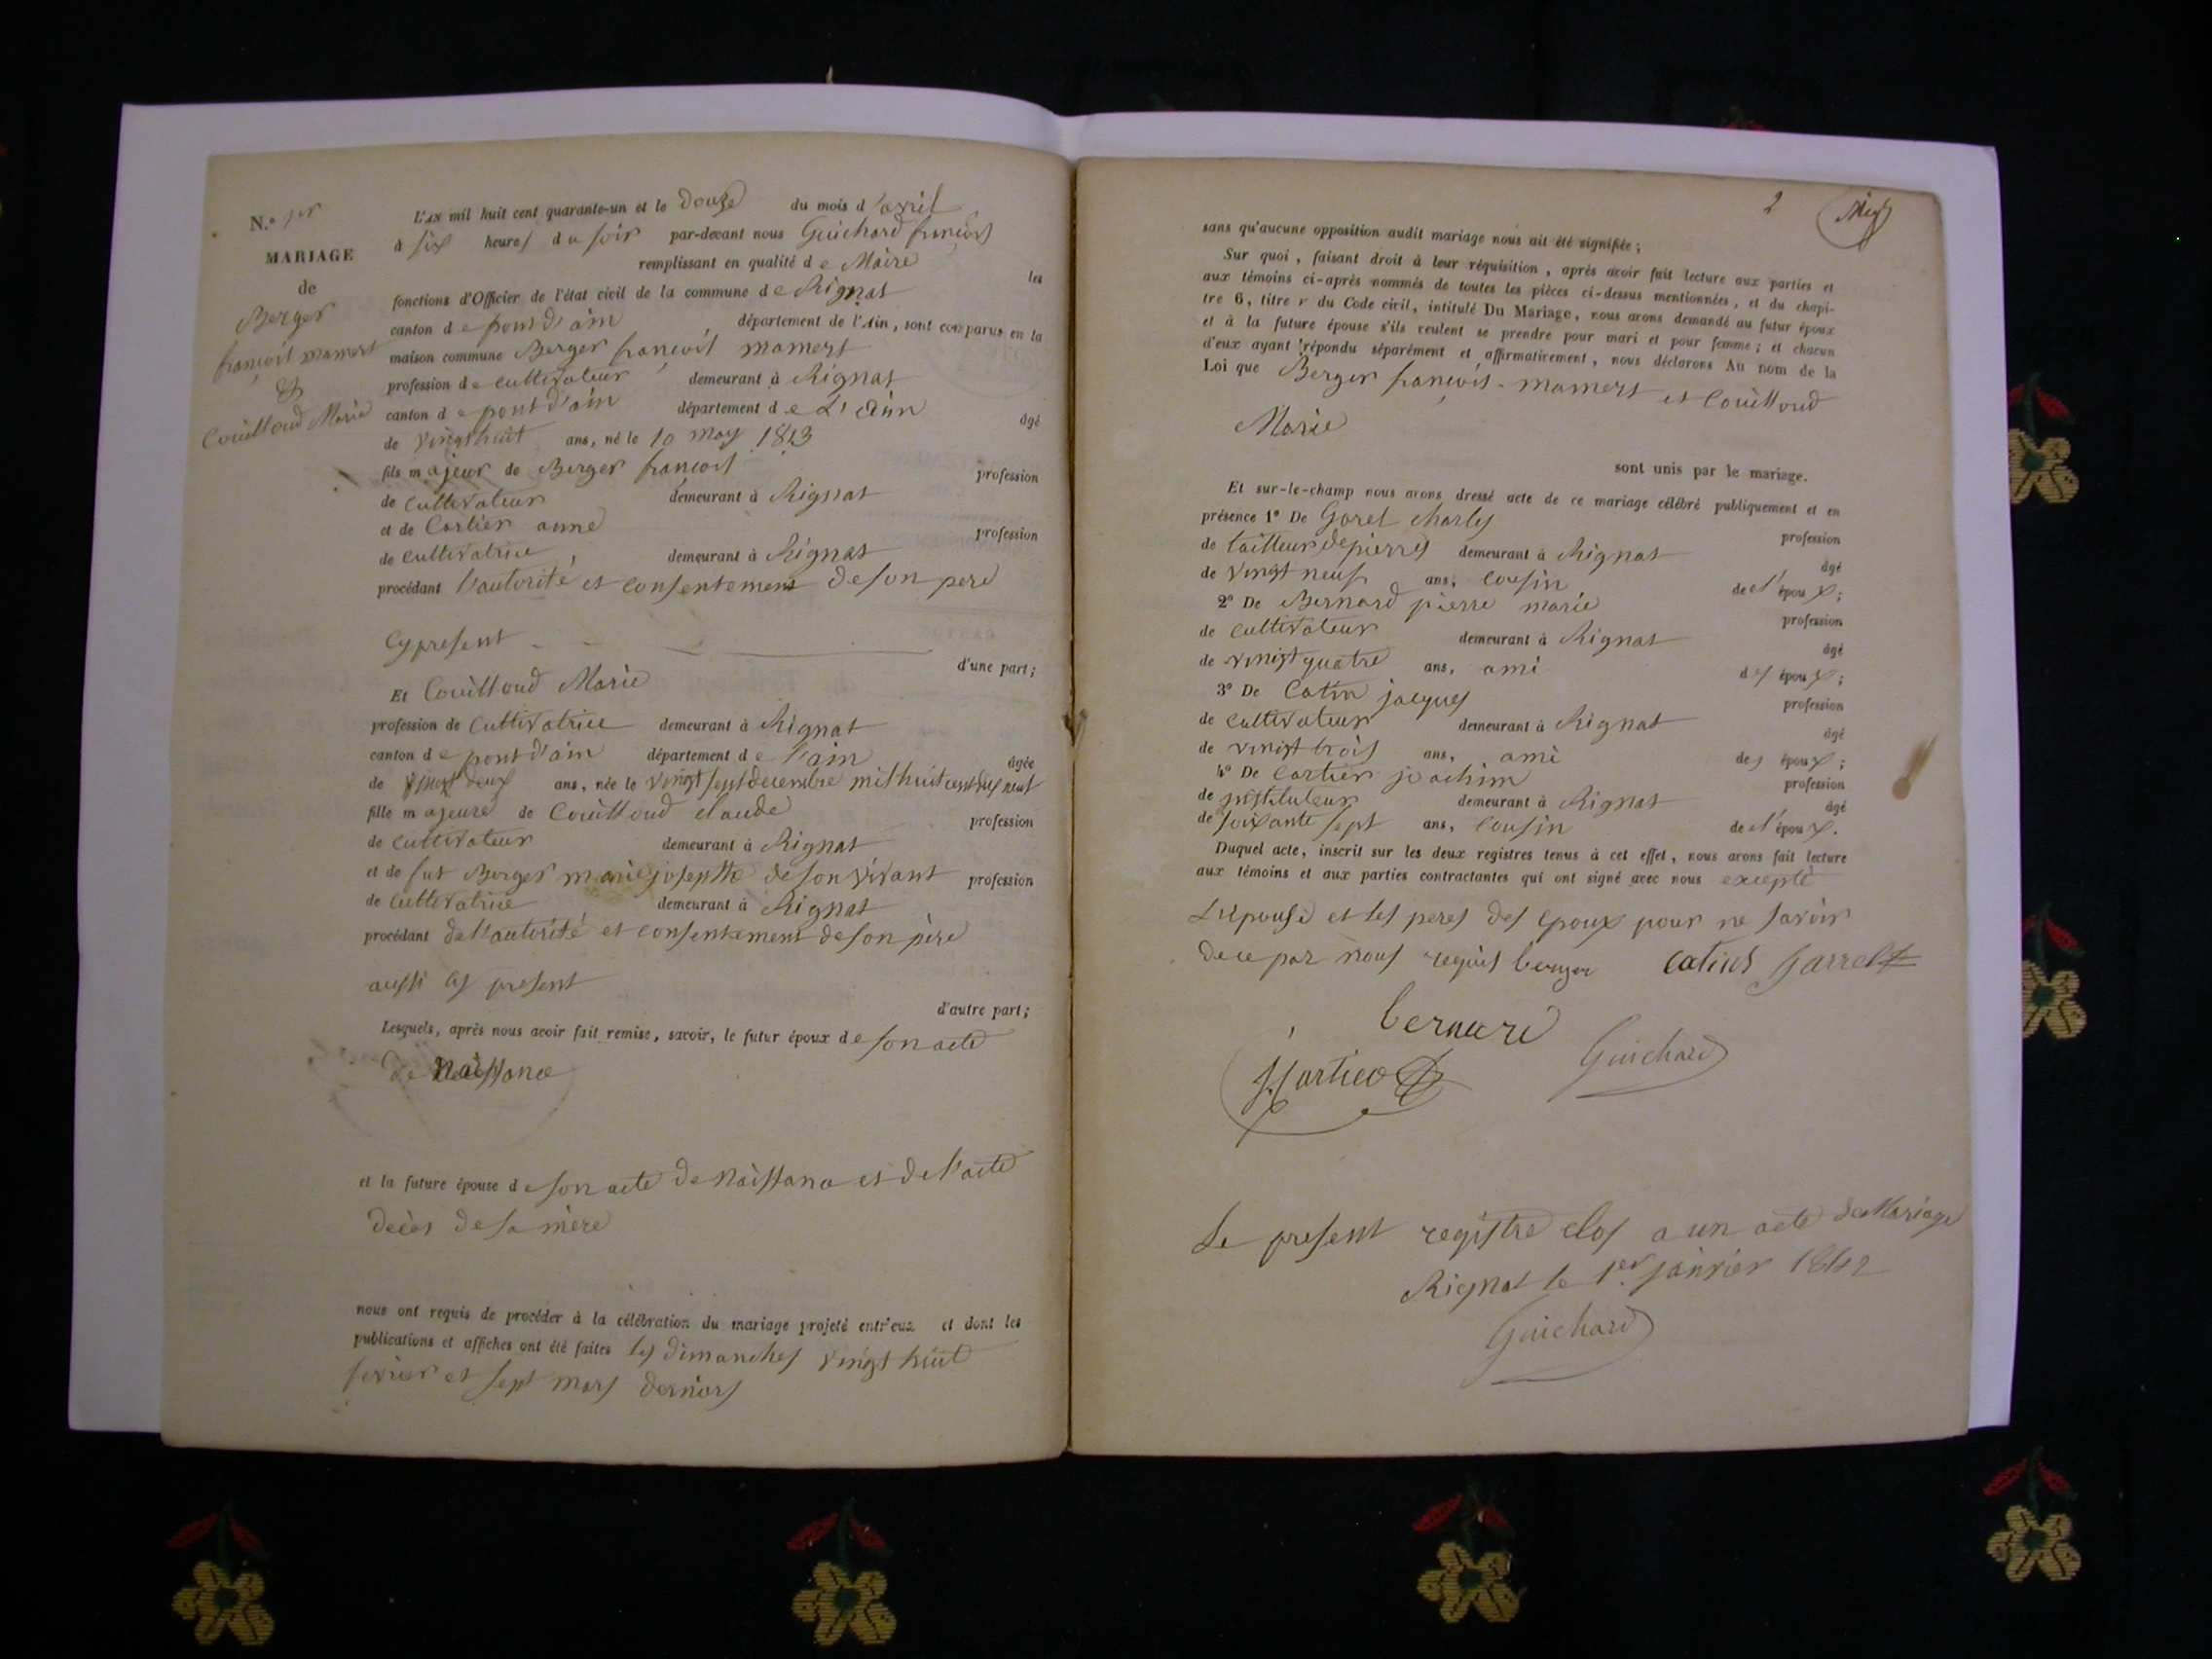 N.º 1er
MARIAGE
de
Berger
françois mamert
&
Couilloud Marie
L'AN mil huit cent quarante-un et le douze du mois d'avril
à six heures du soir par-devant nous Guichard françois
remplissant en qualité de Maire les
fonctions d'Officier de l'état civil de la commune de Rignat
canton de pont d'ain, département de l'Ain, sont comparus en la
maison commune Berger françois mamert
profession de cultivateur demeurant à Rignat
canton de pont d'ain département de L'Ain âgé
de vingt huit ans, né le 10 may 1813
fils majeur de Berger françois profession
de cultivateur demeurant à Rignat
et de Cartier anne profession
de cultivatrice, demeurant à Rignat
procédant l'autorité et consentement de son pere
cy present d'une part;
Et Couilloud Marie
profession de cultivatrice demeurant à Rignat
canton de pont d'ain département de l'ain âgée
de vingt deux ans, née le vingt sept decembre mil huit cent dix neuf
fille majeure de Couilloud claude profession
de cultivateur demeurant à Rignat
et de fut Berger marie josephte de son vivant profession
de cultivatrice demeurant à Rignat
procédant de l'autorité et consentement de son père
aussi cy present
d'autre part;
Lesquels, après nous avoir fait remise, savoir, le futur époux de son acte
de Naissance
et la future épouse de son acte de Naissance et de l'acte
decès de sa mère
nous ont requis de procéder à la célébration du mariage projeté entr'eux et dont les
publications et affiches ont été faites les dimanches vingt huit
fevrier et sept mars derniers
2
sans qu'aucune opposition audit mariage nous ait été signifiée;
Sur quoi, faisant droit à leur réquisition, après avoir fait lecture aux parties et
aux témoins ci-après nommés de toutes les pièces ci-dessus mentionnées, et du chapi-
tre 6, titre v du Code civil, intitulé Du Mariage, nous avons demandé au futur époux
et à la future épouse s'ils veulent se prendre pour mari et pour femme; et chacun
d'eux ayant répondu séparément et affirmativement, nous déclarons Au nom de la
Loi que Berger françois-mamert et Couilloud
Marie
sont unis par le mariage.
Et sur-le-champ nous avons dressé acte de ce mariage célébré publiquement et en
présence 1º De Garel charles profession
de tailleur de pierres demeurant à Rignat âgé
de vingt neuf ans, cousin de l'époux;
2º De Bernard pierre marie profession
de cultivateur demeurant à Rignat âgé
de vingt quatre ans, ami des époux;
3º De Catin jacques profession
de cultivateur demeurant à Rignat âgé
de vingt trois ans, ami des époux;
4º De Cartier joachim profession
de instituteur demeurant à Rignat âgé
de soixante sept ans, cousin de l'époux.
Duquel acte, inscrit sur les deux registres tenus à cet effet, nous avons fait lecture
aux témoins et aux parties contractantes qui ont signé avec nous excepté
L'épouse et les peres des epoux pour ne savoir
de ce par nous requis berger catin Garrel
bernard
Guichard
Le present registre clos a un acte de Mariage
Rignat le 1er janvier 1842
Guichard